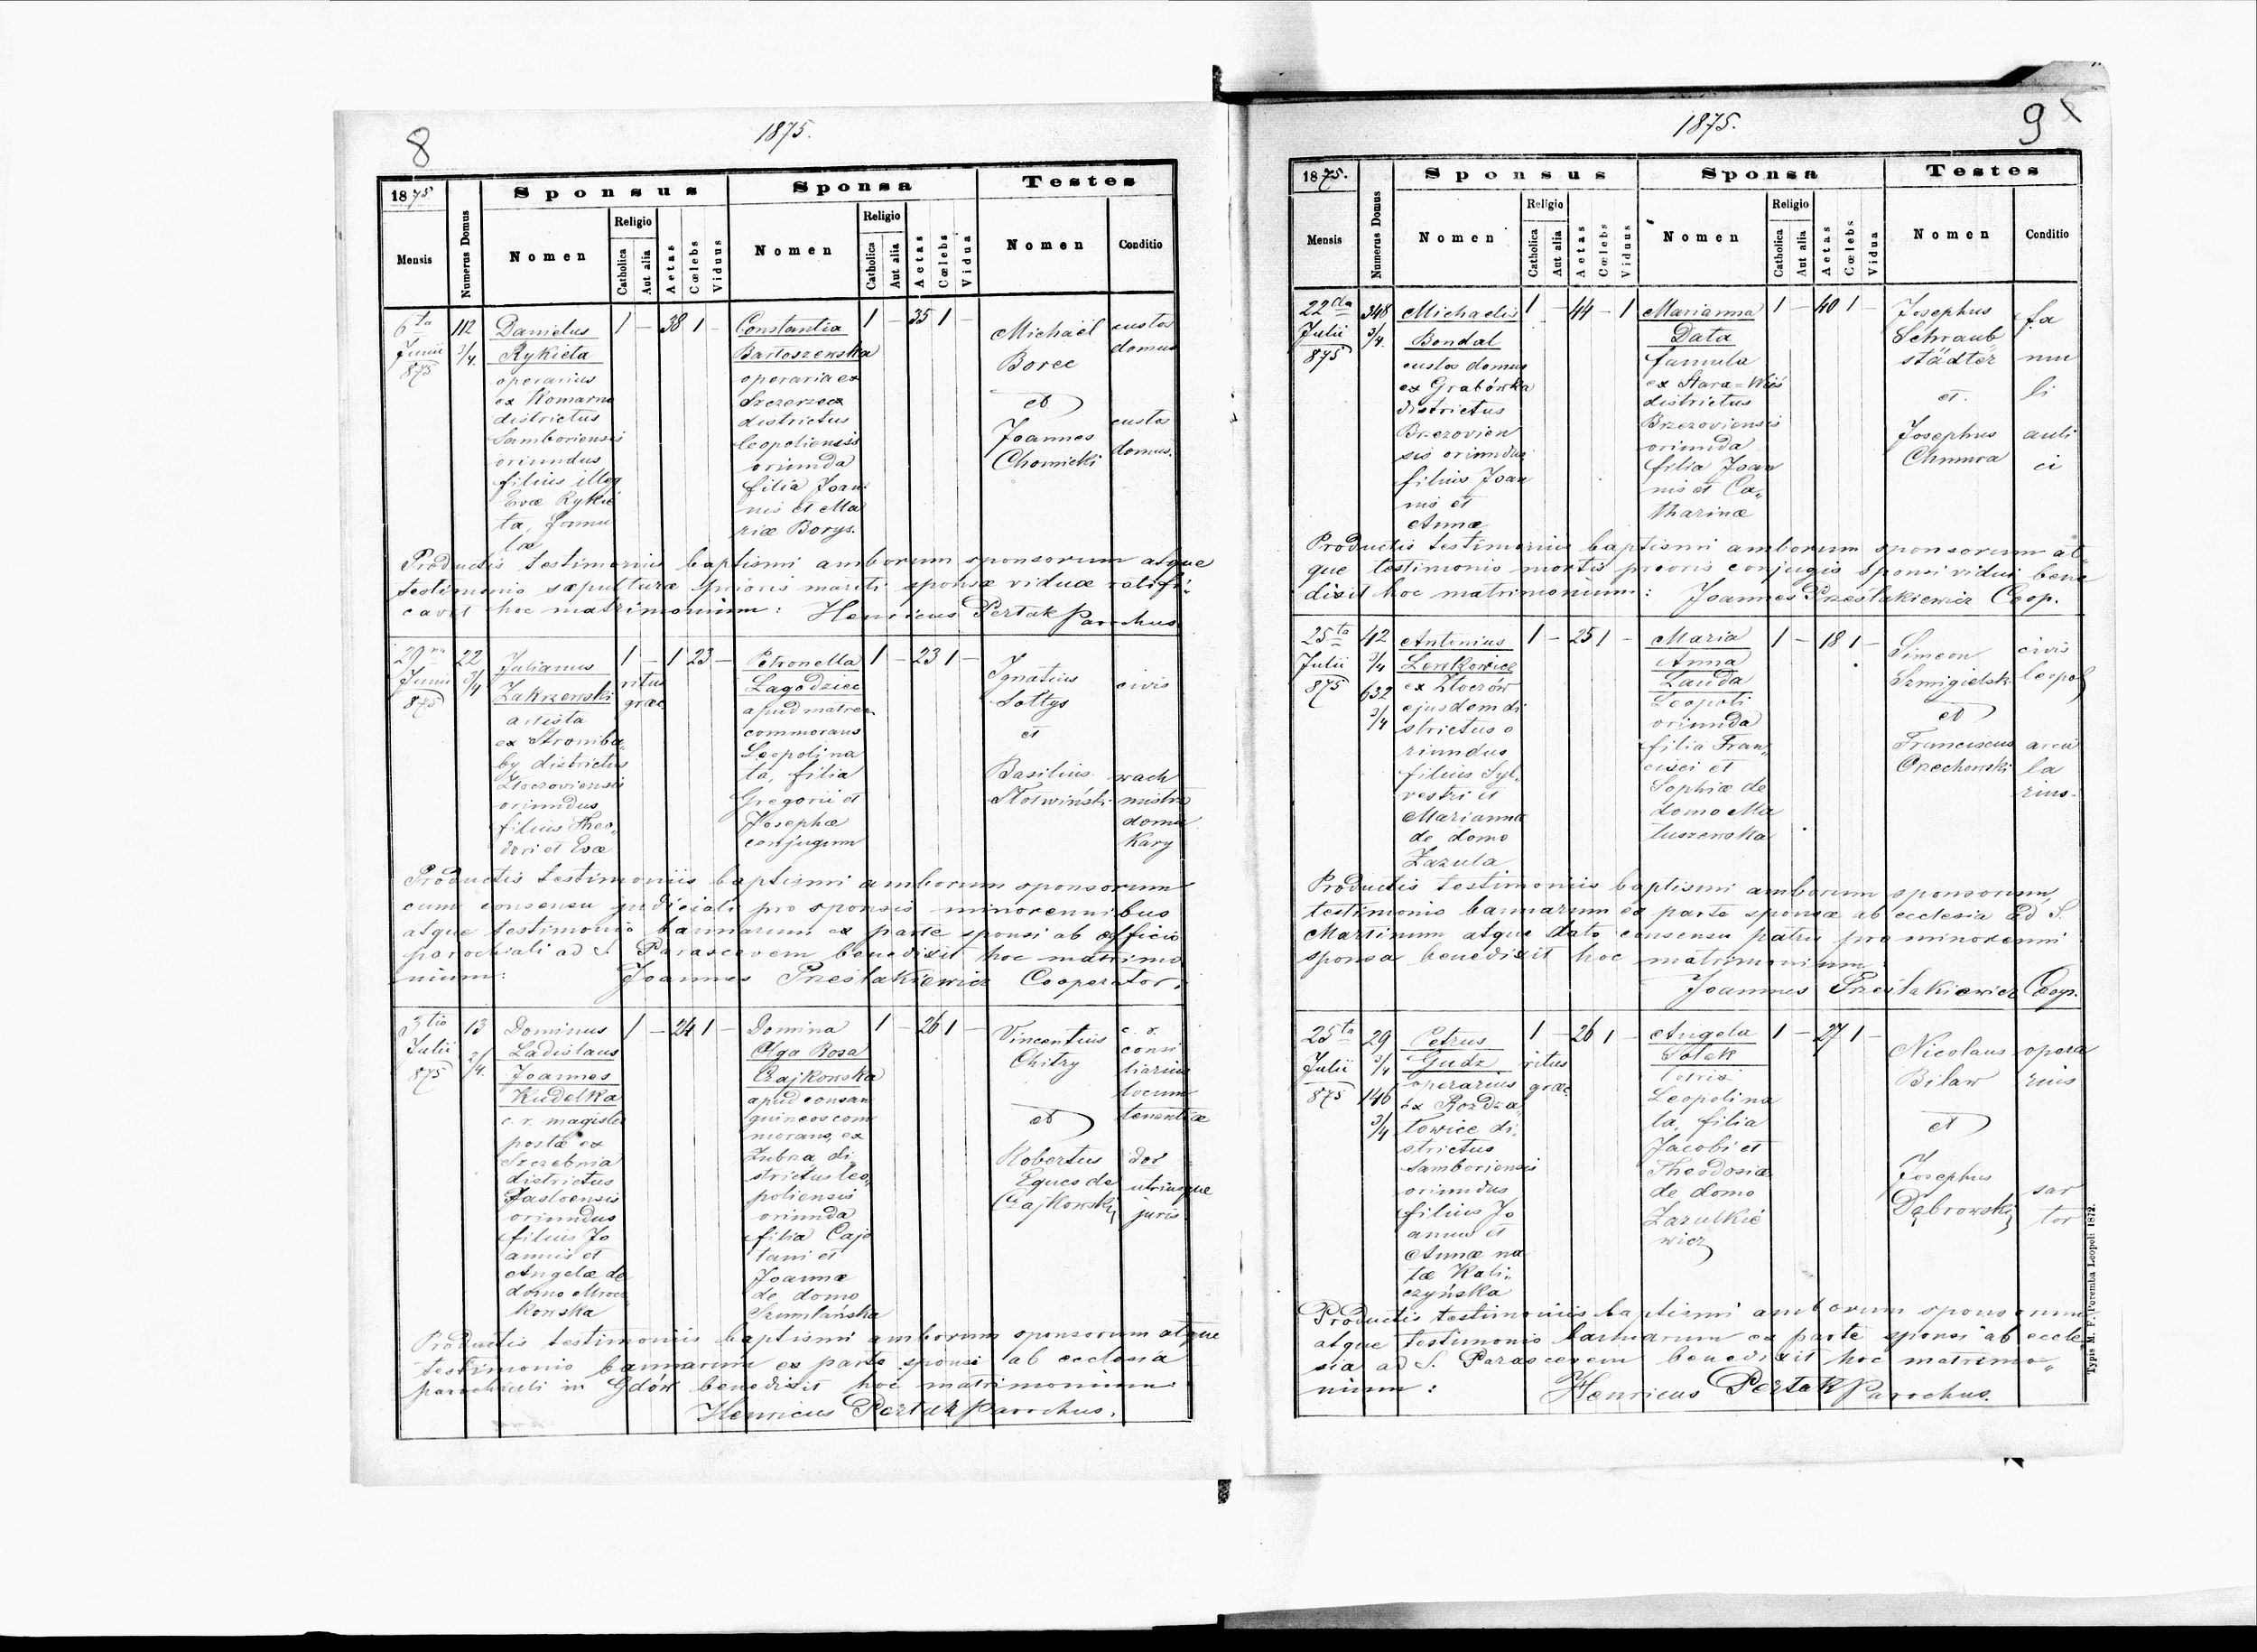 8
1875.
1875.
Sponsus
Sponsa
Testes
Mensis
Numerus Domus
Nomen
Religio
Catholica
Aut alia
Aetas
Cœlebs
Viduus
Nomen
Religio
Catholica
Aut alia
Aetas
Cœlebs
Vidua
Nomen
Conditio
6ta
Junii
875
112
3/4.
Danielus
Rykieta
operarius
ex Komarno
districtus
Samboriensis
oriundus
filius illeg
Evæ Rykie
ta, famu
læ
1 – 38 1 –
Constantia
Bartoszewska
operaria ex
Szczerzec
districtus
Leopoliensis
oriunda
filia Joan
nis et Ma
riæ Borys.
1 – 35 1 –
Michaël
Borec
et
Joannes
Chomicki
custos
domus
custos
domus.
Productis testimoniis baptismi amborum sponsorum atque
testimonio sepulturæ prioris mariti sponsæ viduæ ratifi-
cavit hoc matrimonium: Henricus Pertak Parochus
29na
Junii
875
22
3/4
Julianus
Zakrzewski
artista
ex Stroniba
by districtus
Złoczoviensis
oriundus
filius Theo
dori et Evæ
1 – 1 23 –
ritus
græc
Petronella
Łagodziec
apud matrem
commorans
Leopoli na
ta, filia
Gregorii et
Josephæ
conjugum
1 – 23 1 –
Ignatius
Sołtys
et
Basilius
Słotwiński
civis
wach
mistrz
domu
Kary
Productis testimoniis baptismi amborum sponsorum
cum consensu judiciali pro sponsis minorennibus
atque testimonio bannarum ex parte sponsi ab officio
parochiali ad S. Parascevem benedixit hoc matrimo
nium: Joannes Prześlakiewicz Cooperator.
3tio
Julii
875
13
2/4.
Dominus
Ladislaus
Joannes
Kudelka
c. r. magister
postæ ex
Szczebnia
districtus
Jasloensis
oriundus
filius Jo
annis et
Angelæ de
domo Mroc
kowska
1 – 24 1 –
Domina
Olga Rosa
Czajkowska
apud consan
guineos com
morans, ex
Zubrza di
strictus Leo
poliensis
oriunda
filia Caje
tani et
Joannæ
de domo
Szumlańska
1 – 26 1 –
Vincentius
Chitry
et
Robertus
Eques de
Czajkowski
c. r.
consi
liarius
locum
tenentiæ
dor
utriusque
juris
Productis testimoniis baptismi amborum sponsorum atque
testimonio bannarum ex parte sponsi ab ecclesia
parochiali in Gdów benedixit hoc matrimonium
Henricus Pertak Parochus.
9
1875.
1875.
Sponsus
Sponsa
Testes
Mensis
Numerus Domus
Nomen
Religio
Catholica
Aut alia
Aetas
Cœlebs
Viduus
Nomen
Religio
Catholica
Aut alia
Aetas
Cœlebs
Vidua
Nomen
Conditio
22da
Julii
875
348
3/4.
Michaelis
Bondal
custos domus
ex Grabówka
districtus
Brzozovien
sis oriundus
filius Joan
nis et
Annæ
1 – 44 – 1
Marianna
Data
famula
ex Stara=Wieś
districtus
Brzozoviensis
oriunda
filia Joan
nis et Ca„
tharinæ
1 – 40 1 –
Josephus
Schraub
städter
et.
Josephus
Chmura
fa
mu
li
auli
ci
Productis testimoniis baptismi amborum sponsorum at„
que testimonio mortis prioris conjugis sponsi vidui bene
dixit hoc matrimonium: Joannes Prześlakiewicz Coop.
25ta
Julii
875
42
3/4
632
3/4
Antonius
Lewkowicz
ex Złoczów
ejusdem di
strictus o
riundus
filius Syl„
vestri et
Marianna
de domo
Zazula
1 – 25 1 –
Maria
Anna
Lauda
Leopoli
oriunda
filia Fran„
cisci et
Sophiæ de
domo Ma
tuszewska
1 – 18 1 –
Simeon
Szmigielski
et
Franciscus
Orzechowski
civis
leopol
arcu
la
rius.
Productis testimoniis baptismi amborum sponsorum,
testimonio bannarum ex parte sponsæ ab ecclesia ad S.
Martinum atque dato consensu patris pro minorenni
sponsa benedixit hoc matrimonium
Joannes Prześlakiewicz Coop.
25ta
Julii
875
29
3/4
146
3/4
Petrus
Gudz
operarius
ex Rozdza„
łowice di„
strictus
Samboriensis
oriundus
filius Jo
annis et
Annæ na
tæ Kali„
czyńska
1 – 26 1 –
ritus
græc
Angela
Sołek
Leopoli na
ta, filia
Jacobi et
Theodosiæ
de domo
Zazulkie
wicz
1 – 27 1 –
Nicolaus
Bilaw
et
Josephus
Dąbrowski
opera
rius
sar
tor
Productis testimoniis baptismi amborum sponsorum
atque testimonio bannarum ex parte sponsi ab eccle
sia ad S. Parascevem benedixit hoc matrimo„
nium: Henricus Pertak Parochus.
Typis M. F. Poremba Leopoli 1872.